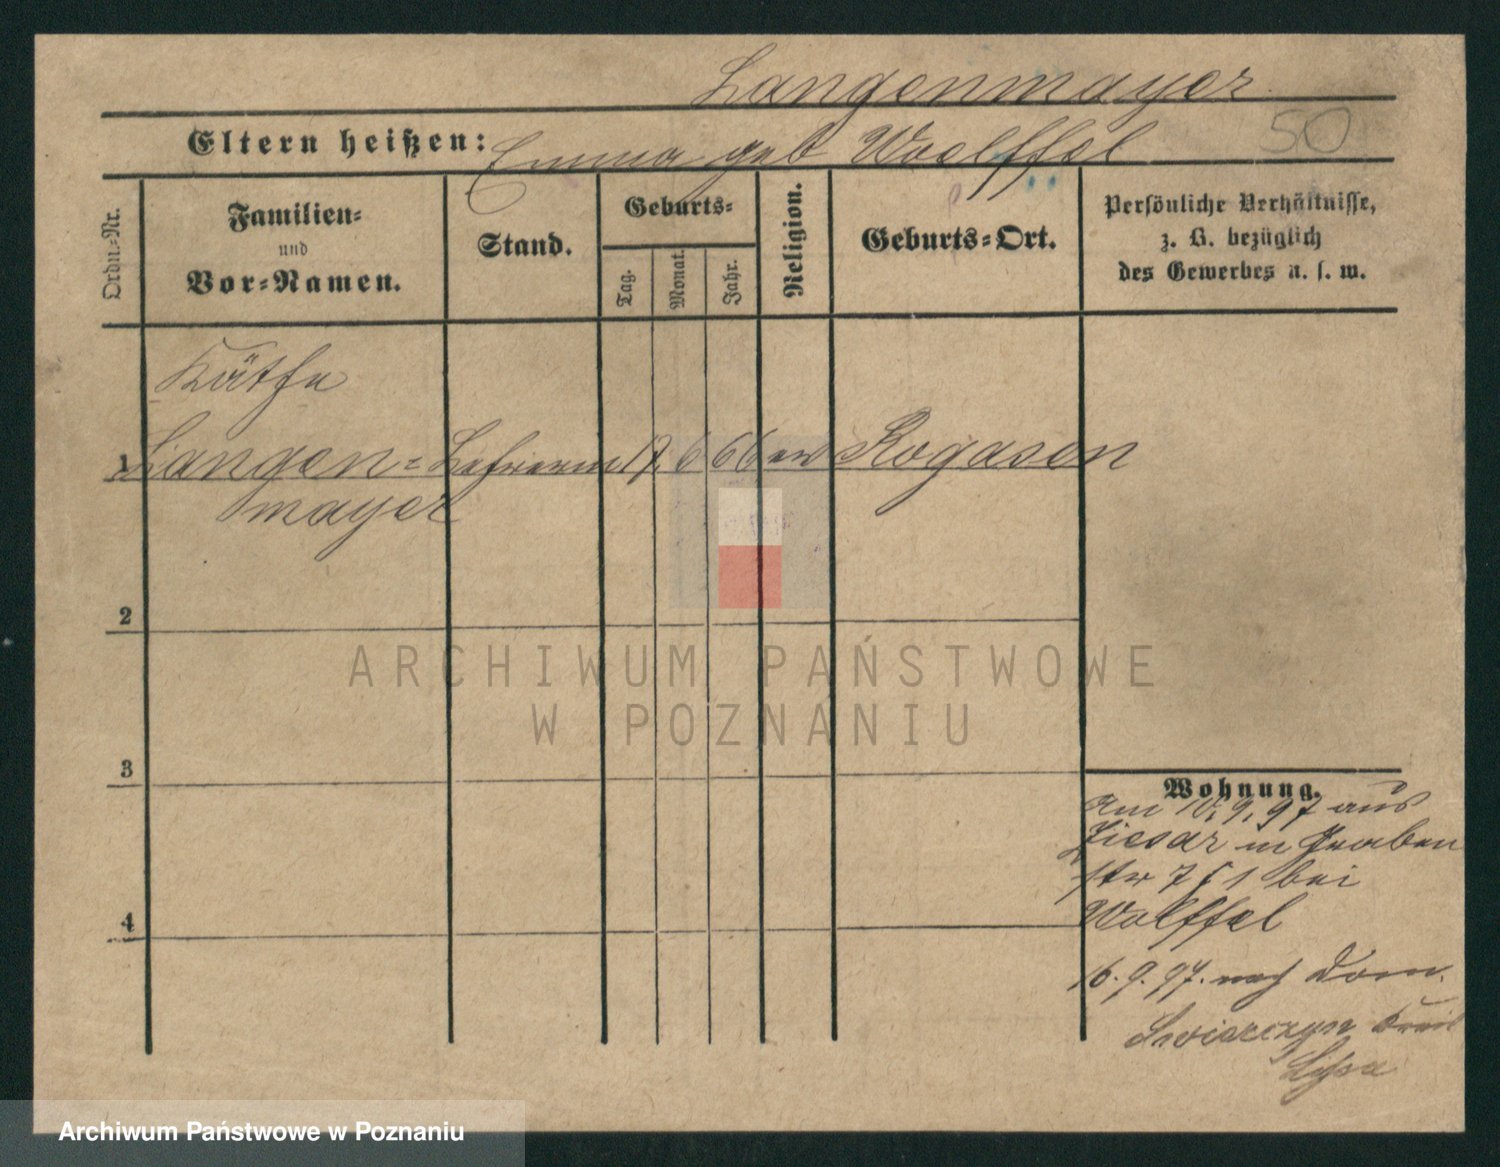 Langenmayer
50
Eltern heißen: Emma geb Woelffel
Ordn.-Nr.
Familien-
und
Vor-Namen.
Stand.
Geburts-
Tag.
Monat.
Jahr.
Religion.
Geburts-Ort.
Persönliche Verhältnisse,
z. B. bezüglich
des Gewerbes u. s. w.
Käthe
1 Langen= Lehrerin 17 6 66 ev Rogasen
mayer
2
3
4
ARCHIWUM PAŃSTWOWE
W POZNANIU
Wohnung.
Am 10. 9. 97 aus
Ziesar in Graben
str 7 I bei
Wolffel
16. 9. 97. nach Dom.
Kreis
Lissa
Archiwum Państwowe w Poznaniu